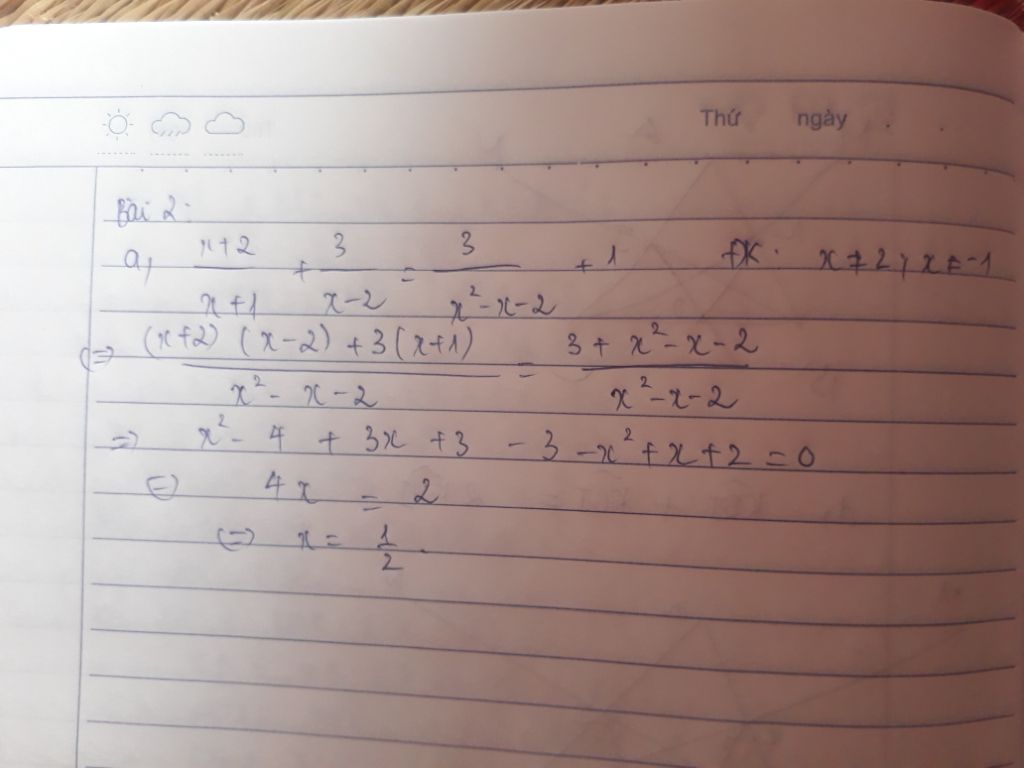 Thứ ngày
Bài 2:
a, \frac{x+2}{x+1} + \frac{3}{x-2} = \frac{3}{x²-x-2} + 1 ĐK: x ≠ 2; x ≠ -1
(=) \frac{(x+2)(x-2)+3(x+1)}{x²-x-2} = \frac{3+x²-x-2}{x²-x-2}
=) x² - 4 + 3x + 3 - 3 - x² + x + 2 = 0
(=) 4x = 2
(=) x = \frac{1}{2}.